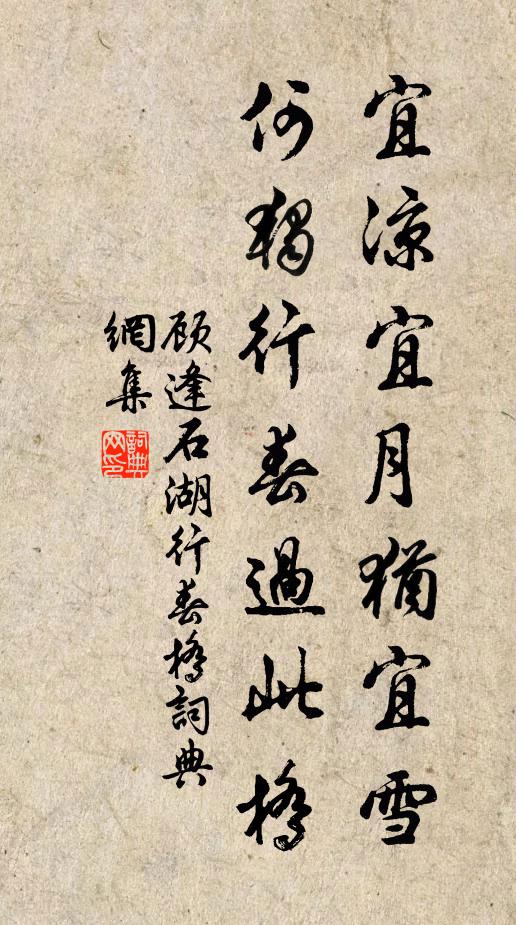 宜涼宜月猶宜雪
何獨行春過此橋
顧逢石湖行春橋詞典
網集
詞典
网印